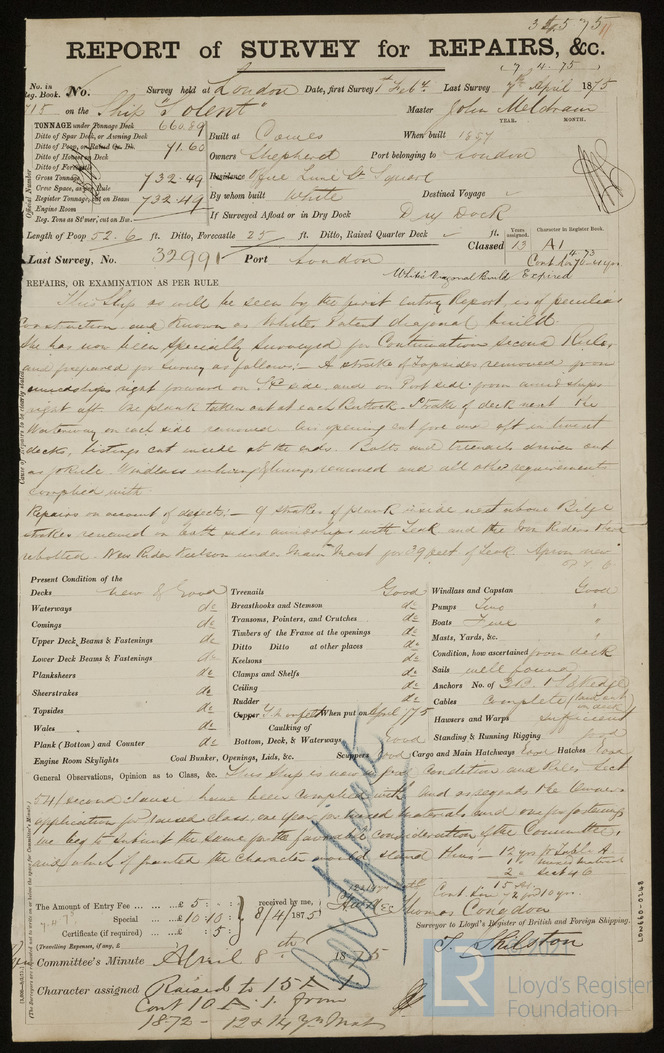 REPORT of SURVEY for REPAIRS, &c.
No. in Reg. Book. No. Survey held at London Date, first Survey 1st Feby. Last Survey 7th April 1875
715 on the Ship "Solent" Master John Meldrum
TONNAGE under Tonnage Deck 660.89
Ditto of Spar Deck, or Awning Deck
Ditto of Poop, or Raised Qr. Dk. 71.60
Ditto of Houses on Deck
Ditto of Forecastle
Gross Tonnage 732.49
Crew Space, as per Rule
Register Tonnage, cut on Beam 732.49
Engine Room
Reg. Tons as St'mer, cut on Bm.
Official Number
YEAR. MONTH.
Built at Cowes When built 1857
Owners Shepherd Port belonging to London
Residence Lime St Square
By whom built White Destined Voyage
If Surveyed Afloat or in Dry Dock Dry Dock
Length of Poop 52.6 ft. Ditto, Forecastle 25 ft. Ditto, Raised Quarter Deck ft.
Years assigned. Character in Register Book.
Classed 13 A1
Last Survey, No. 32991 Port London
White's Diagonal Build Expired
REPAIRS, OR EXAMINATION AS PER RULE
This Ship as will be seen by the first entry Report, is of peculiar
construction and known as Whites Patent diagonal build
She has now been specially surveyed for Continuation second Rule,
and prepared for survey as follows:- A strake of Topsides removed from
amidships right forward on side and on Port side from amidships
right aft. One plank taken out at each Buttock. Strake of deck next the
Waterway on each side removed. An opening cut fore and aft in lowest
decks, listings cut inside at the ends. Bolts and treenails driven out
as p Rule. Windlass removed and all other requirements
complied with
Repairs on account of defects:- 9 strakes of plank inside next above Bilge
strakes renewed on both sides amidships with Teak and the Iron Riders there
rebolted. New Rider Keelson under Main Mast for 39 feet of Teak. Apron new
Present Condition of the
Decks new & Good
Waterways do
Comings do
Upper Deck Beams & Fastenings do
Lower Deck Beams & Fastenings do
Planksheers do
Sheerstrakes do
Topsides do
Wales do
Plank (Bottom) and Counter do
Engine Room Skylights
Treenails Good
Breasthooks and Stemson do
Transoms, Pointers, and Crutches do
Timbers of the Frame at the openings do
Ditto Ditto at other places do
Keelsons do
Clamps and Shelfs do
Ceiling do
Rudder do
Copper When put on April /75
Caulking of
Bottom, Deck, & Waterways Good
Coal Bunker, Openings, Lids, &c. Scuppers Good
Windlass and Capstan Good
Pumps Two "
Boats Four "
Masts, Yards, &c. "
Condition, how ascertained from deck
Sails well found
Anchors No. of 3 B. 1 S. 2 Kedge
Cables complete
Hawsers and Warps sufficient
Standing & Running Rigging good
Cargo and Main Hatchways Good Hatches Good
General Observations, Opinion as to Class, &c. This Ship is now in good condition and Rules Sect
54/second clause have been complied with and as regards the Owners
application for raised class, one year for mixed materials and one for fastenings
we beg to submit the same for the favorable consideration of the Committee,
and which if granted the Character would stand thus- 12 yrs for Table A.
1 " mixed material
2 " Sect 46
15 A1
The Amount of Entry Fee ... £ 5 : - :
Special ... £ 10 : 10 :
Certificate (if required) : 5 :
received by me, 8/4/1875
(Travelling Expenses, if any, £ )
Thomas Congdon
Surveyor to Lloyd's Register of British and Foreign Shipping.
T. Skilston
Committee's Minute April 8th 1875
Character assigned Raised to 15 A 1
Cont 10 A. 1. from
1872 - 12 & 14 yr Mats
LON660-0148
2021
LR
Lloyd's Register
Foundation